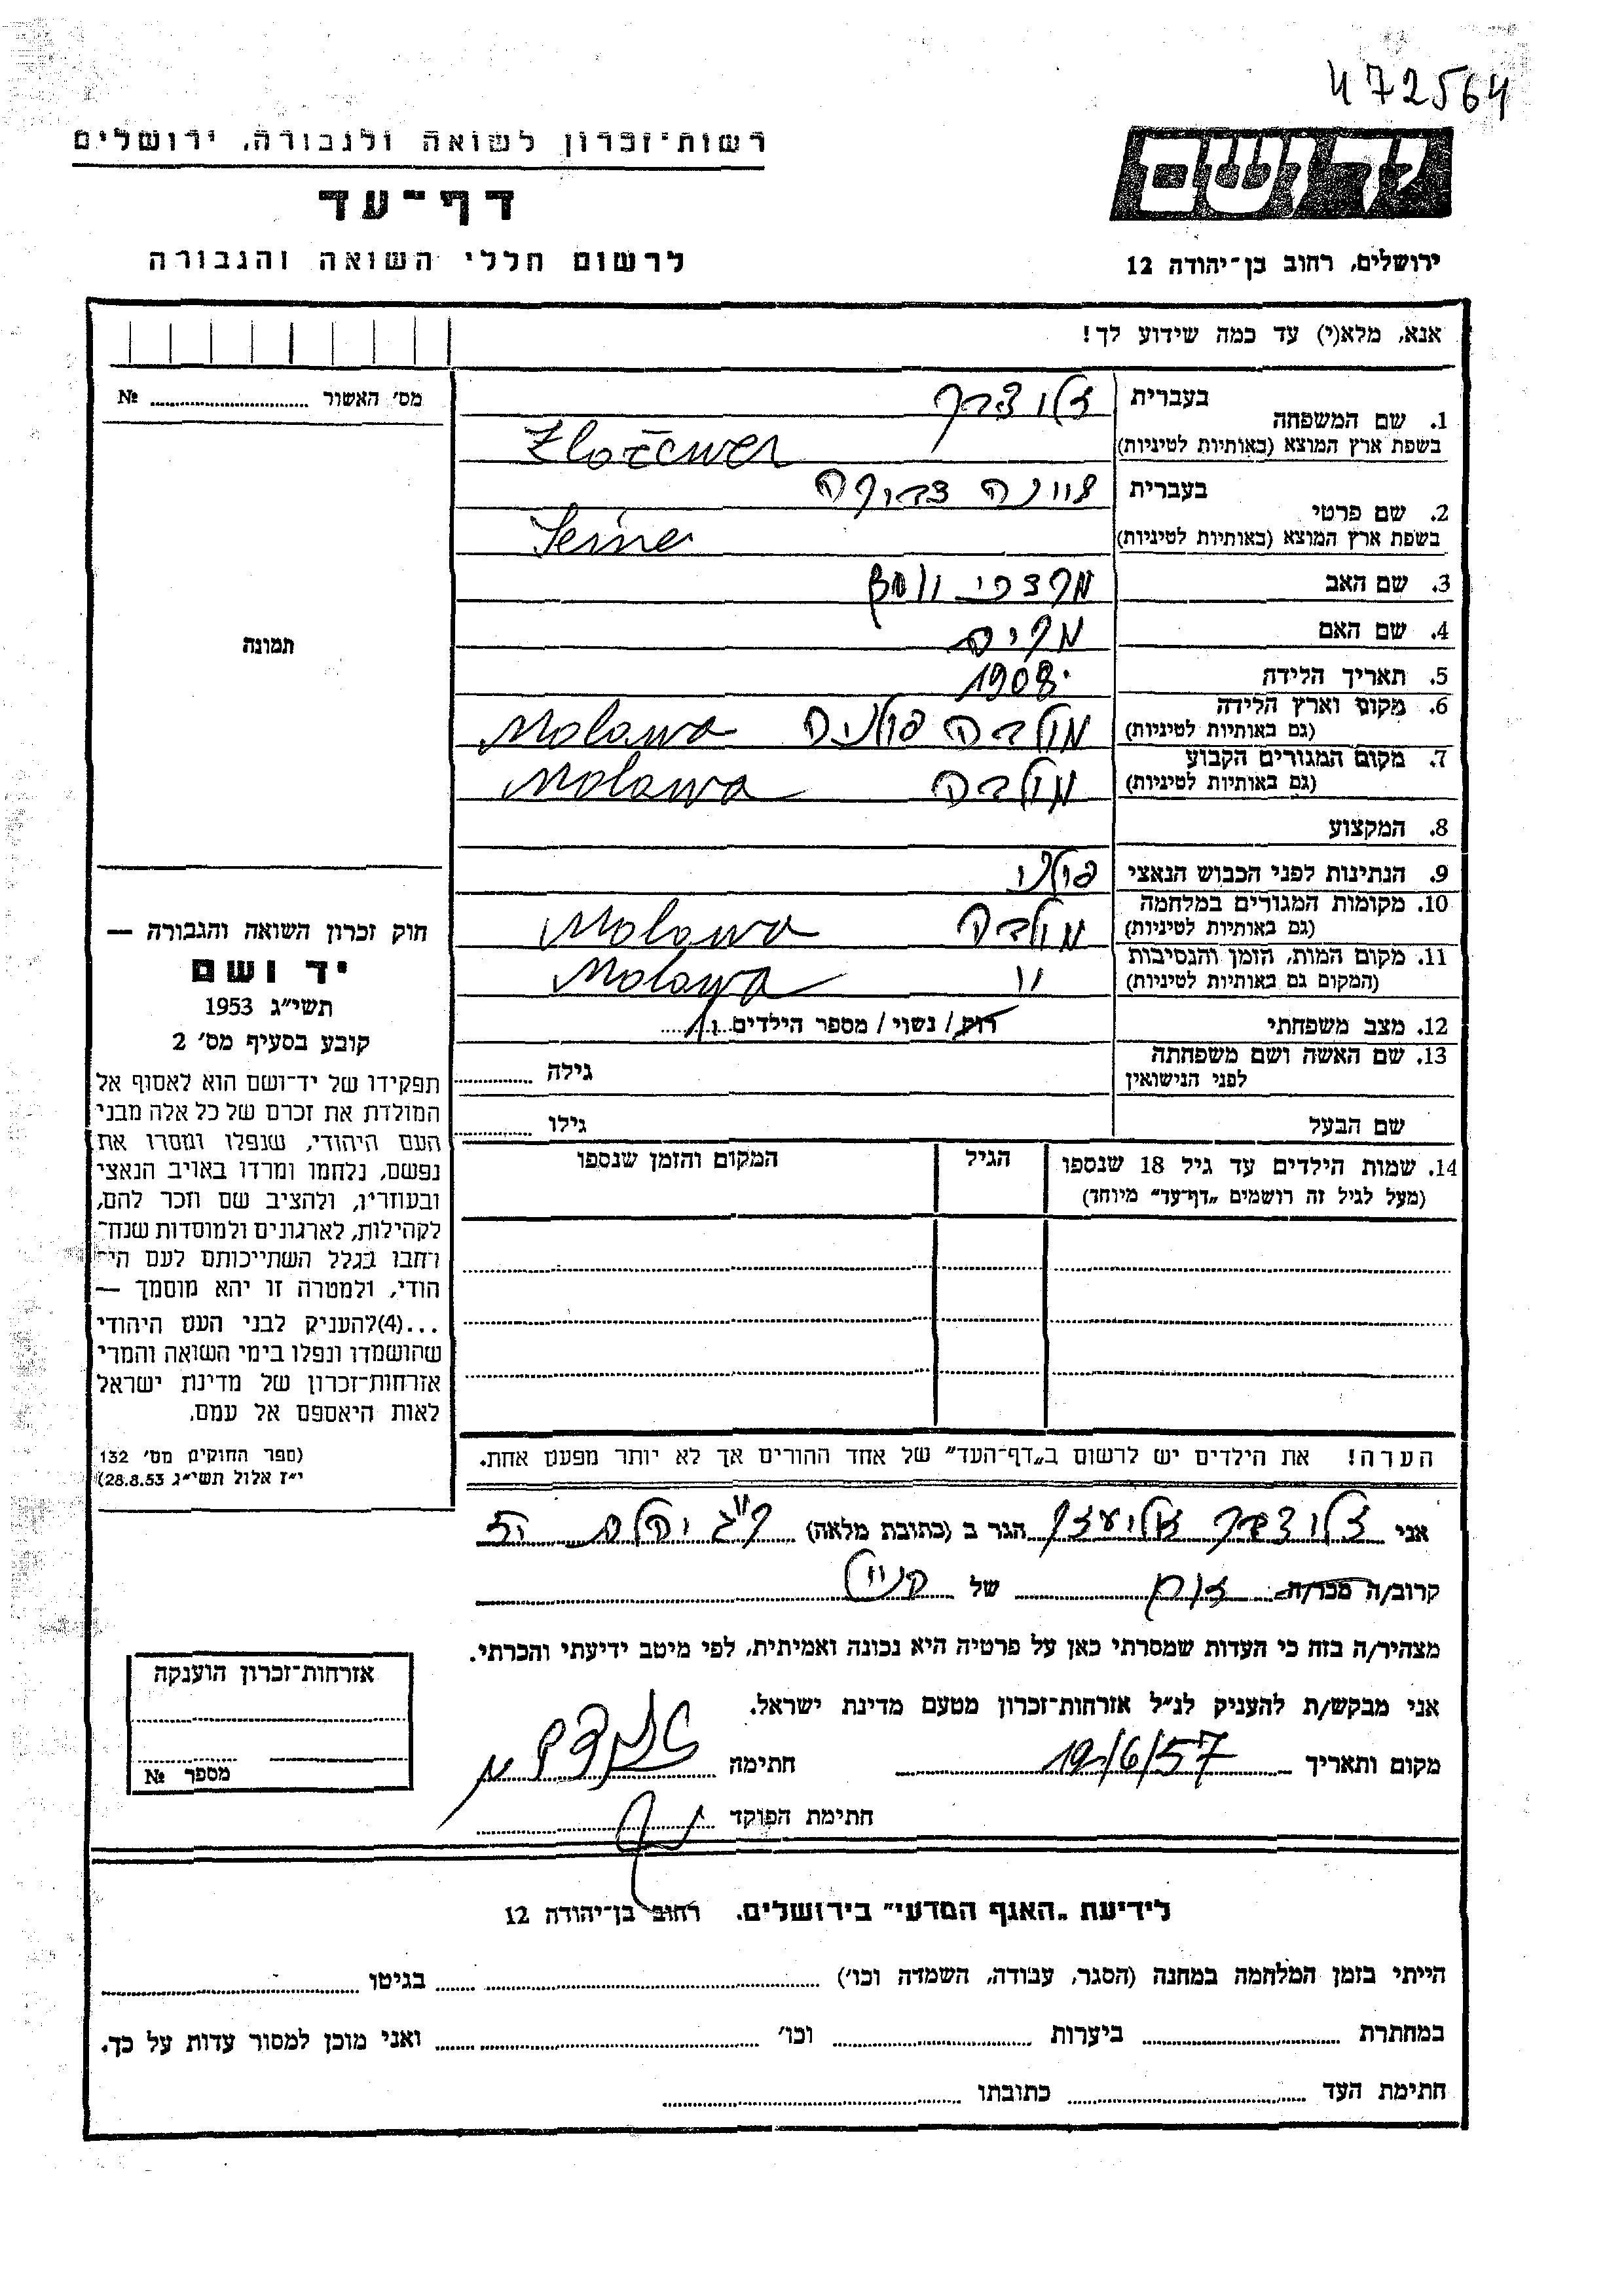 472564
רשות־זכרון לשואה ולגבורה, ירושלים
דף־עד
לרשום חללי השואה והגבורה
יד ושם
ירושלים, רחוב בן־יהודה 12
אנא, מלא(י) עד כמה שידוע לך!
מס׳ האשור № 
1. שם המשפחה
בעברית
בשפת ארץ המוצא (באותיות לטיניות)
2. שם פרטי
בעברית
בשפת ארץ המוצא (באותיות לטיניות)
3. שם האב
4. שם האם
5. תאריך הלידה 1908
6. מקום וארץ הלידה
(גם באותיות לטיניות) Molawa
7. מקום המגורים הקבוע
(גם באותיות לטיניות) Molawa
8. המקצוע
9. הנתינות לפני הכבוש הנאצי פולני
10. מקומות המגורים במלחמה
(גם באותיות לטיניות) Molawa
11. מקום המות, הזמן והנסיבות
(המקום גם באותיות לטיניות) " Molawa
12. מצב משפחתי רוק / נשוי / מספר הילדים
13. שם האשה ושם משפחתה
לפני הנישואין גילה
שם הבעל גילו
14. שמות הילדים עד גיל 18 שנספו הגיל המקום והזמן שנספו
(מעל לגיל זה רושמים „דף־עד״ מיוחד)
תמונה
חוק זכרון השואה והגבורה —
יד ושם
תשי״ג 1953
קובע בסעיף מס׳ 2
תפקידו של יד־ושם הוא לאסוף אל
המולדת את זכרם של כל אלה מבני
העם היהודי, שנפלו ומסרו את
נפשם, נלחמו ומרדו באויב הנאצי
ובעוזריו, ולהציב שם וזכר להם,
לקהילות, לארגונים ולמוסדות שנח־
רחבו בגלל השתייכותם לעם הי־
הודי, ולמטרה זו יהא מוסמך —
...(4)להעניק לבני העם היהודי
שהושמדו ונפלו בימי השואה והמרי
אזרחות־זכרון של מדינת ישראל
לאות היאספם אל עמם.
(ספר החוקים מס׳ 132
י״ז אלול תשי״ג 28.8.53)
הערה! את הילדים יש לרשום ב„דף־העד״ של אחד ההורים אך לא יותר מפעם אחת.
אני הגר ב (כתובת מלאה)
קרוב/ה מכר/ה של
מצהיר/ה בזה כי העדות שמסרתי כאן על פרטיה היא נכונה ואמיתית, לפי מיטב ידיעתי והכרתי.
אני מבקש/ת להעניק לנ״ל אזרחות־זכרון מטעם מדינת ישראל.
מקום ותאריך 19/6/57 חתימה
חתימת הפוקד
אזרחות־זכרון הוענקה
מספר №
לידיעת „האגף המדעי״ בירושלים. רחוב בן־יהודה 12
הייתי בזמן המלחמה במחנה (הסגר, עבודה, השמדה וכו׳) בגיטו
במחתרת ביערות וכו׳ ואני מוכן למסור עדות על כך.
חתימת העד כתובתו